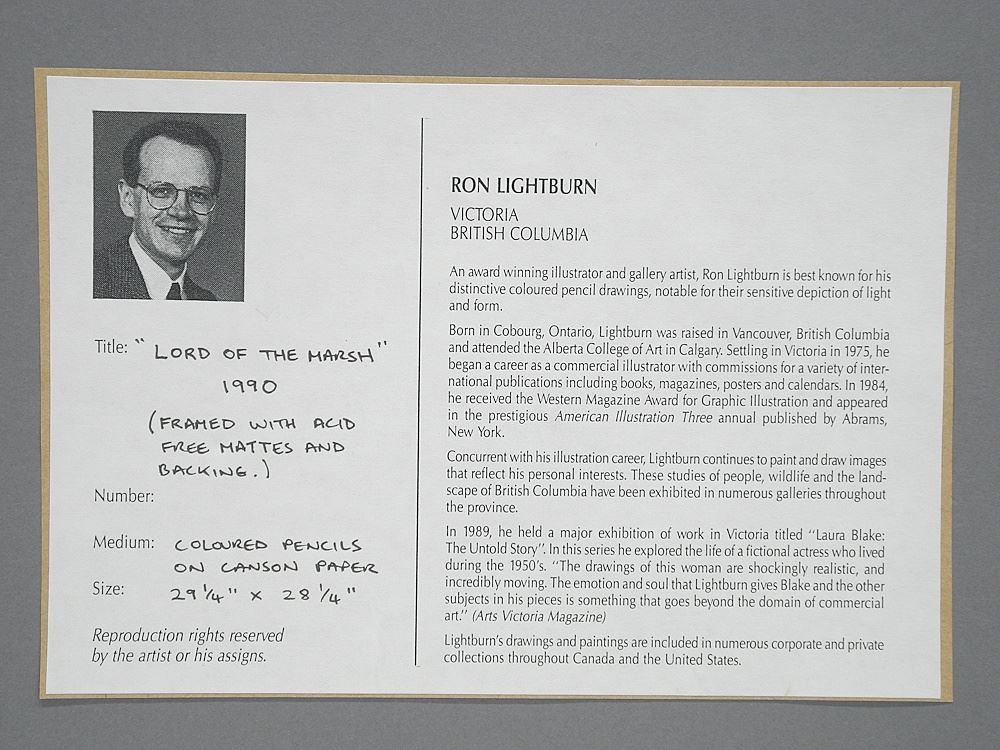 Title: "LORD OF THE MARSH"
1990
(FRAMED WITH ACID
FREE MATTES AND
BACKING.)
Number:
Medium: COLOURED PENCILS
ON CANSON PAPER
Size: 29 1/4" x 28 1/4"
Reproduction rights reserved
by the artist or his assigns.
RON LIGHTBURN
VICTORIA
BRITISH COLUMBIA
An award winning illustrator and gallery artist, Ron Lightburn is best known for his
distinctive coloured pencil drawings, notable for their sensitive depiction of light
and form.
Born in Cobourg, Ontario, Lightburn was raised in Vancouver, British Columbia
and attended the Alberta College of Art in Calgary. Settling in Victoria in 1975, he
began a career as a commercial illustrator with commissions for a variety of inter-
national publications including books, magazines, posters and calendars. In 1984,
he received the Western Magazine Award for Graphic Illustration and appeared
in the prestigious American Illustration Three annual published by Abrams,
New York.
Concurrent with his illustration career, Lightburn continues to paint and draw images
that reflect his personal interests. These studies of people, wildlife and the land-
scape of British Columbia have been exhibited in numerous galleries throughout
the province.
In 1989, he held a major exhibition of work in Victoria titled "Laura Blake:
The Untold Story". In this series he explored the life of a fictional actress who lived
during the 1950's. "The drawings of this woman are shockingly realistic, and
incredibly moving. The emotion and soul that Lightburn gives Blake and the other
subjects in his pieces is something that goes beyond the domain of commercial
art." (Arts Victoria Magazine)
Lightburn's drawings and paintings are included in numerous corporate and private
collections throughout Canada and the United States.